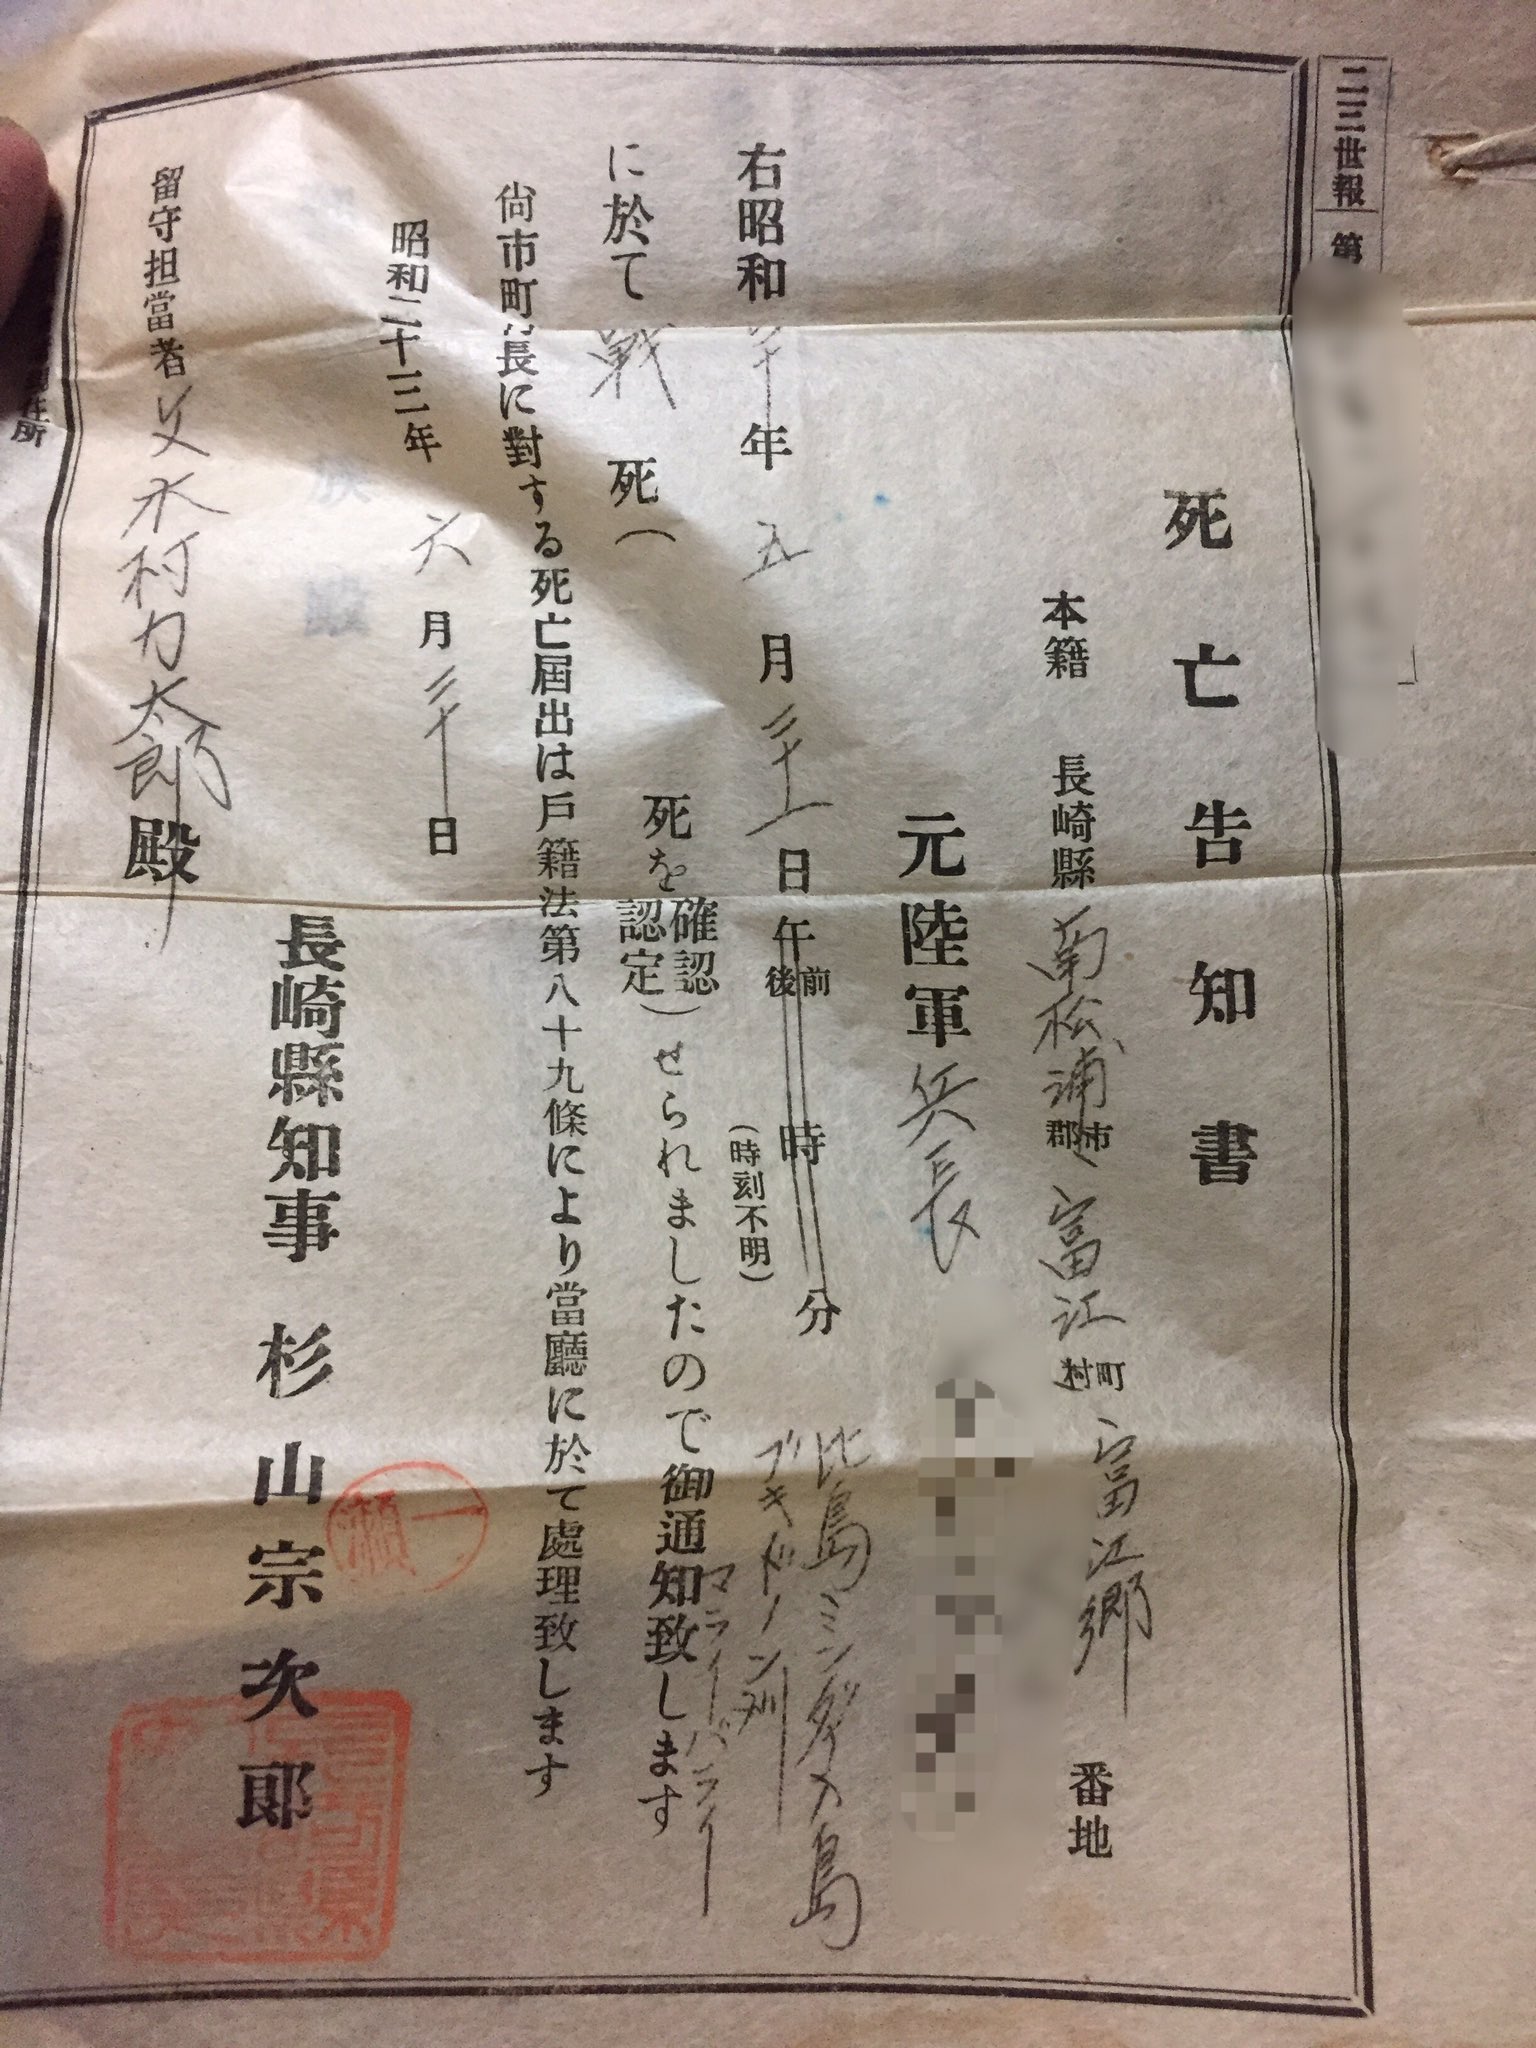 二三世報 第
死亡告知書
本籍 長崎縣 南松浦 市郡 富江 町村 富江郷 番地
元陸軍 兵長
右昭和 二十 年 五 月 三十一 日午 前後 時 分 比島ミンダナオ島
(時刻不明) ブキドノン州
マライバライ
に於て 戦 死( 死を 確認 認定 )せられましたので御通知致します
尙市町村長に對する死亡屆出は戶籍法第八十九條により當廳に於て處理致します
昭和二十三年 六 月 三十 日
長崎縣知事 杉山宗次郎
一瀬
留守担當者 父 木村力太郎 殿